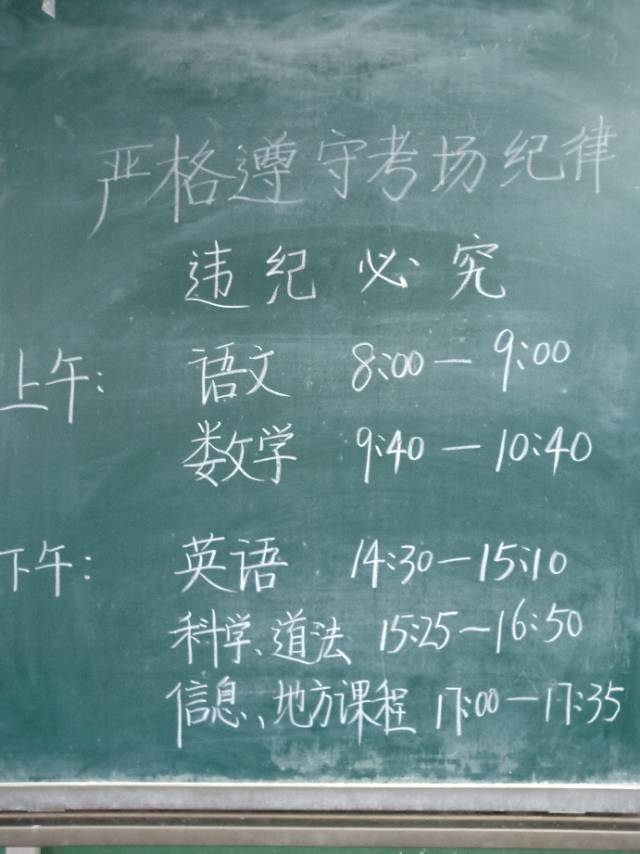 严格遵守考场纪律
违纪必究
上午: 语文 8:00—9:00
数学 9:40—10:40
下午: 英语 14:30—15:10
科学、道法 15:25—16:50
信息、地方课程 17:00—17:35